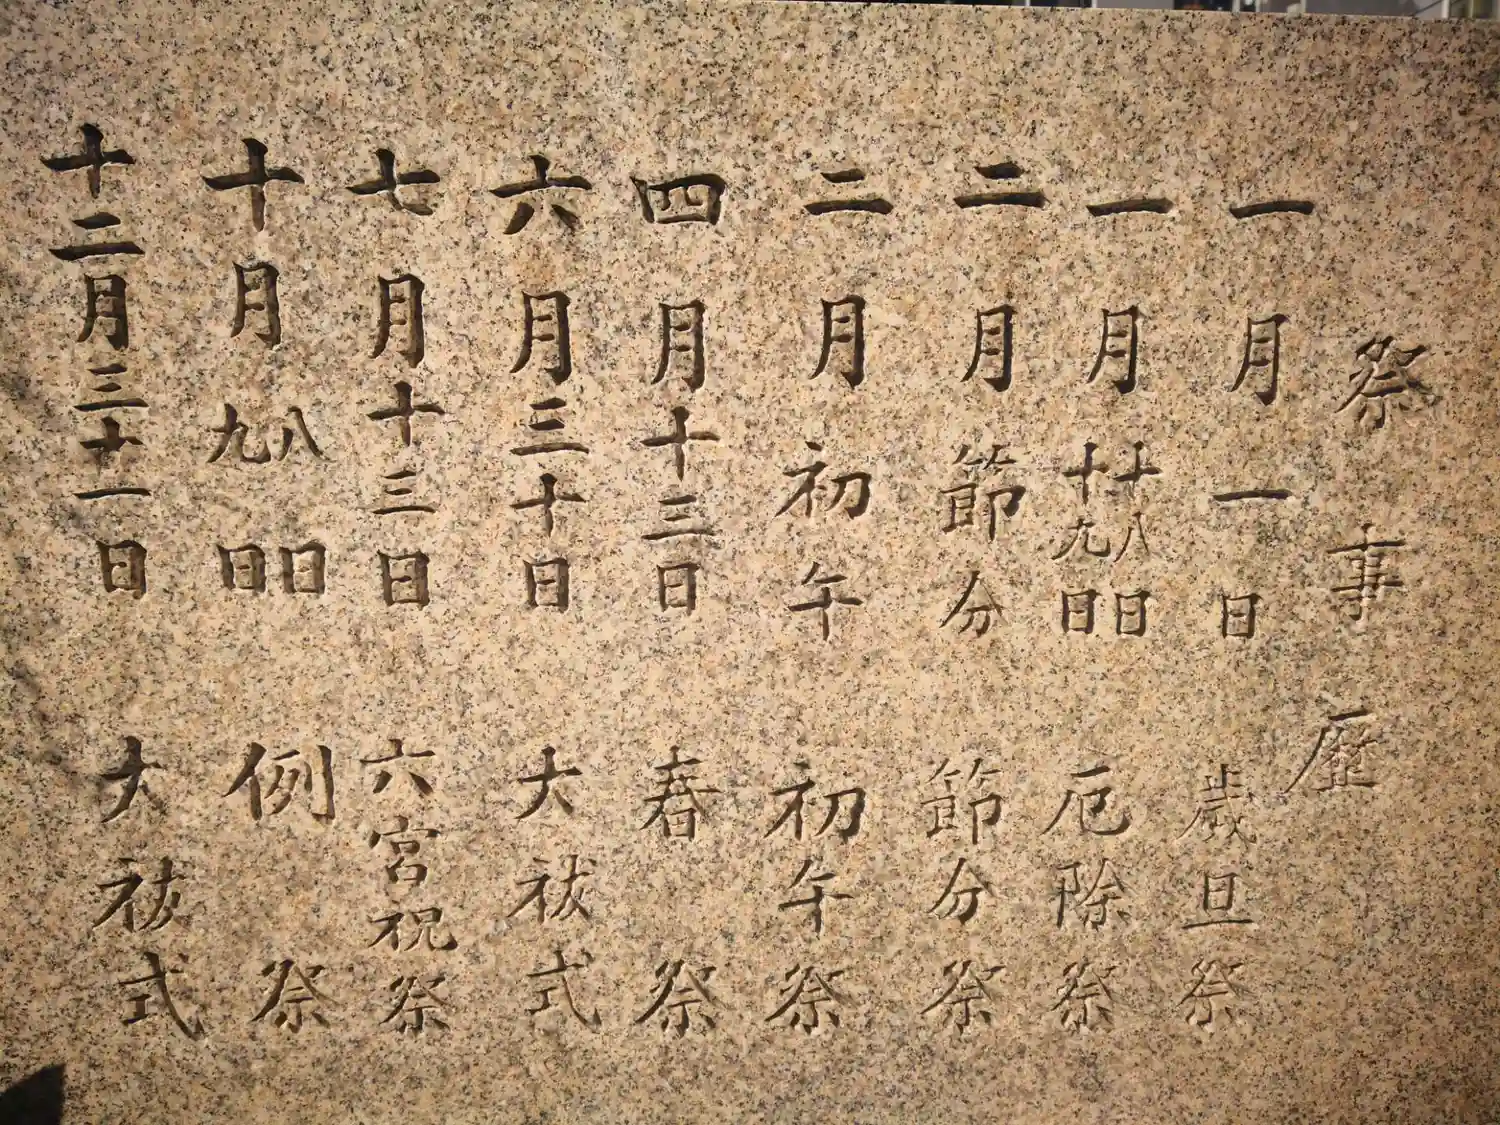 祭事歴
一月一日 歳旦祭
一月廿八日九日 厄除祭
二月節分 節分祭
二月初午 初午祭
四月十三日 春祭
六月三十日 大祓式
七月十三日 六宮祝祭
十月八日九日 例祭
十二月三十一日 大祓式